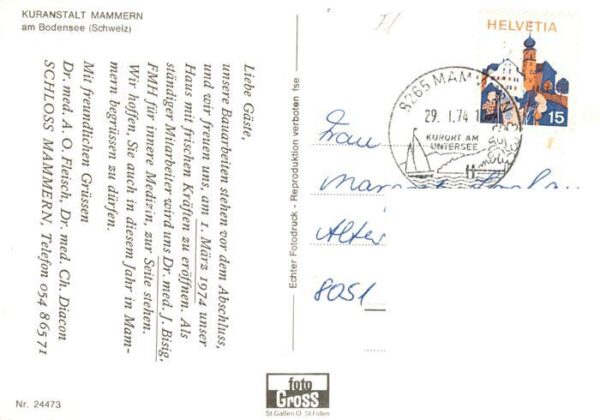 KURANSTALT MAMMERN
am Bodensee (Schweiz)
Liebe Gäste,
unsere Bauarbeiten stehen vor dem Abschluss,
und wir freuen uns, am 1. März 1974 unser
Haus mit frischen Kräften zu eröffnen. Als
ständiger Mitarbeiter wird uns Dr. med. J. Bisig,
FMH für innere Medizin, zur Seite stehen.
Wir hoffen, Sie auch in diesem Jahr in Mam-
mern begrüssen zu dürfen.
Mit freundlichen Grüssen
Dr. med. A. O. Fleisch, Dr. med. Ch. Diacon
SCHLOSS MAMMERN, Telefon 054 86571
Nr. 24473
Echter Fotodruck - Reproduktion verboten fse
foto
GROSS
St Gallen O St Fiden
HELVETIA
15
8265 MAMMERN
29. 1.74
KURORT AM
UNTERSEE
Frau
Alte
8051